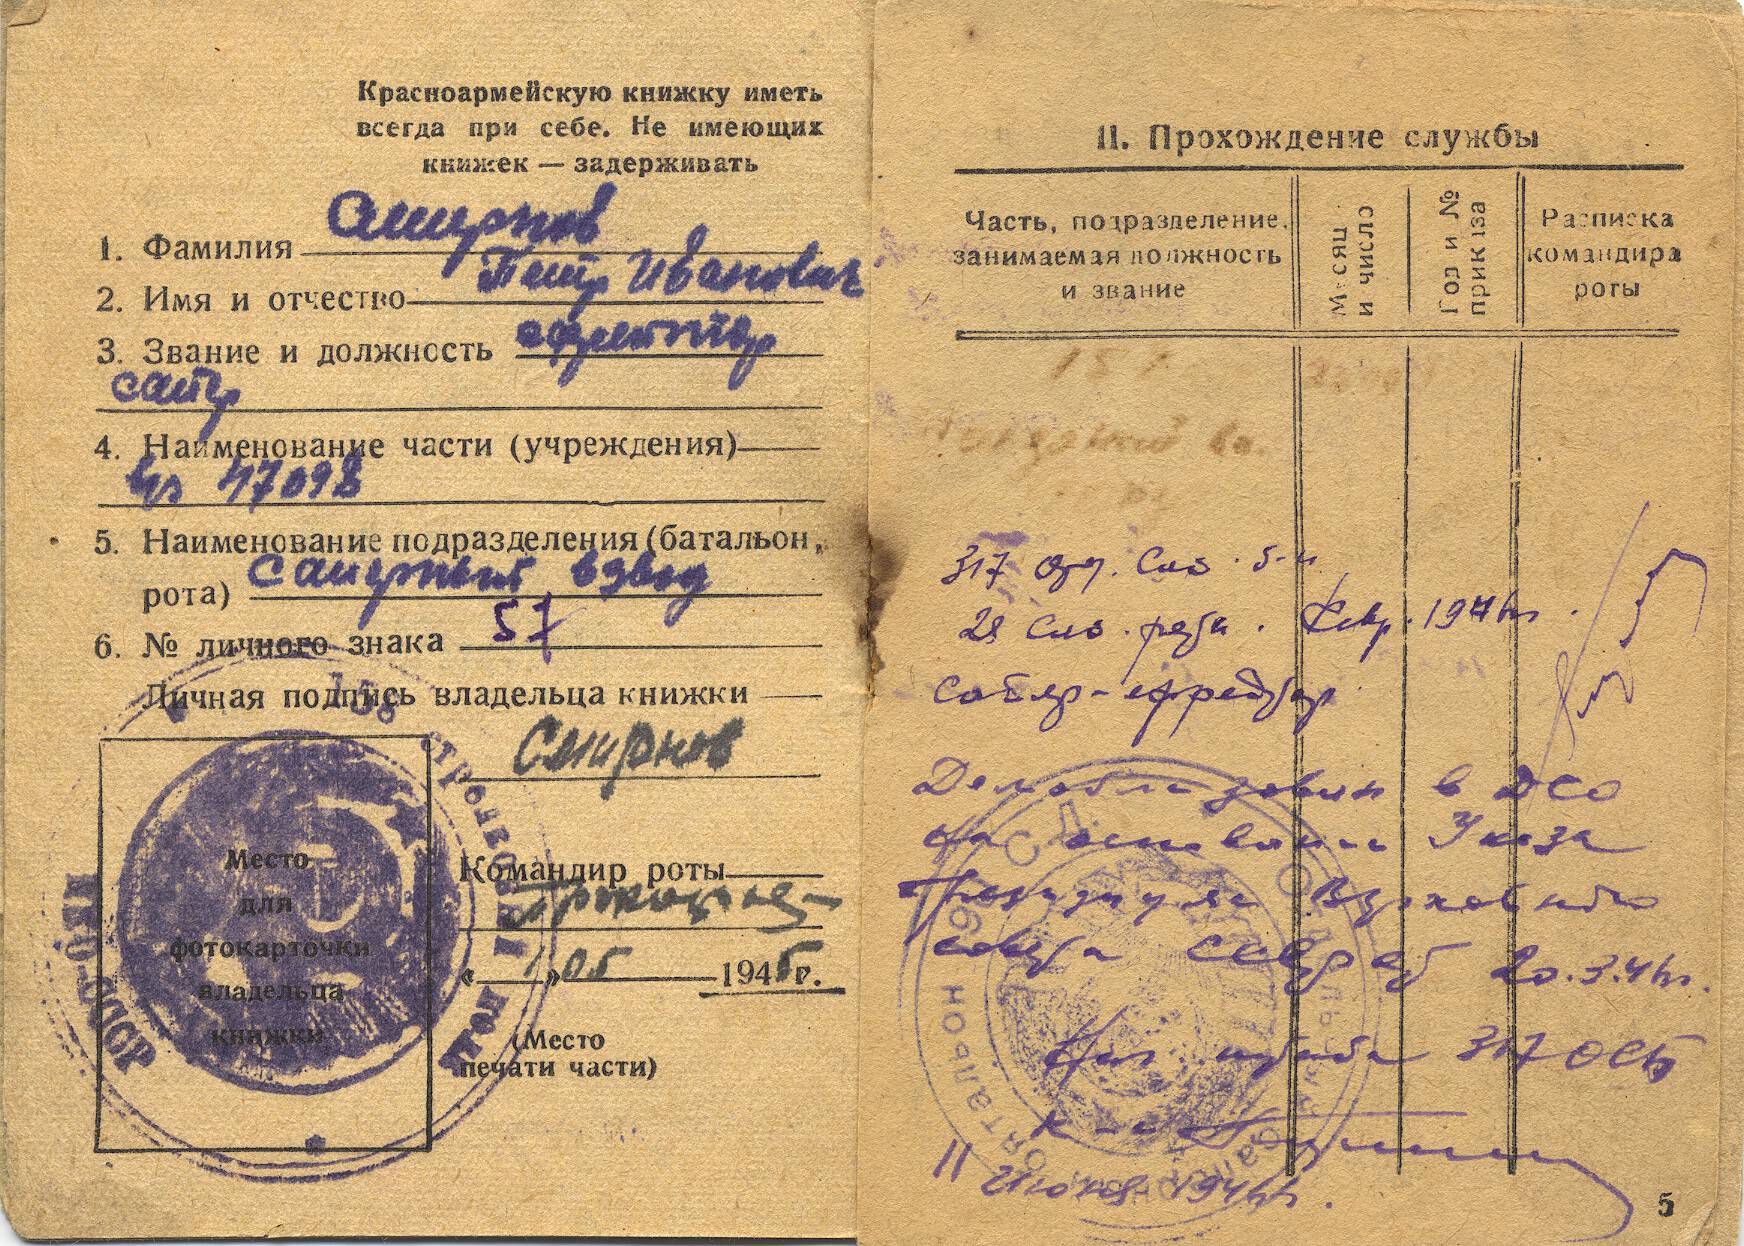 Красноармейскую книжку иметь
всегда при себе. Не имеющих
книжек — задерживать
1. Фамилия Смирнов
2. Имя и отчество Петр Иванович
3. Звание и должность ефрейтор
сапер
4. Наименование части (учреждения)
47092
5. Наименование подразделения (батальон,
рота) Саперный взвод
6. № личного знака 57
Личная подпись владельца книжки
Смирнов
Место
для
фотокарточки
владельца
книжки
Командир роты
« » 05 1945 г.
(Место
печати части)
НКО-СССР
II. Прохождение службы
Часть, подразделение,
занимаемая должность
и звание
Месяц
и число
Год и №
приказа
Расписка
командира
роты
317 отд. сап. б-н
2я сап. рота. Февр. 1946г.
сапер-ефрейтор
Демобилизован в
на основании Указа
Президиума Верховного
совета СССР от 20.3.46г.
Нач. штаба 317 ОСБ
11 Июня 1946г.
5